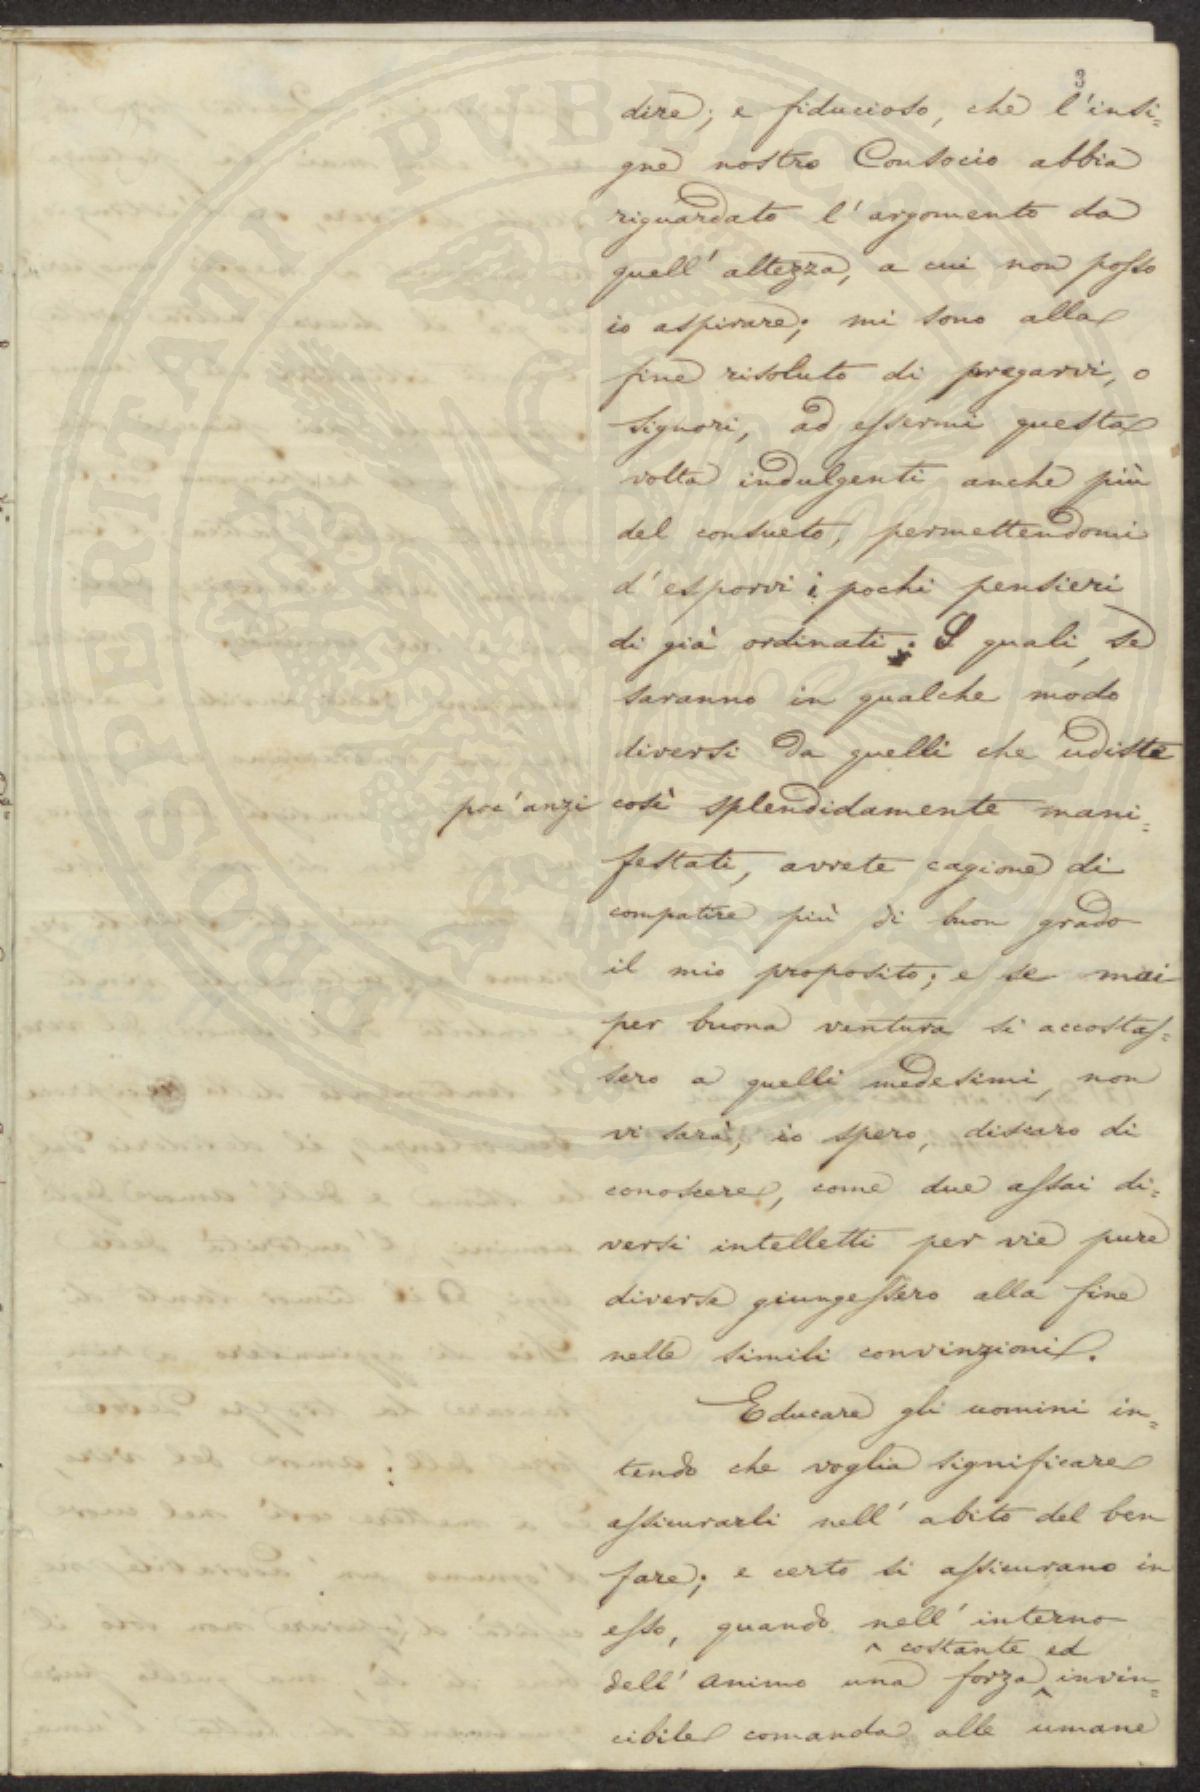 3
dire; e fiducioso, che l'insi=
gne nostro Consocio abbia
riguardato l'argomento da
quell'altezza, a cui non posso
io aspirare; mi sono alla
fine risoluto di pregarvi, o
Signori, ad essermi questa
volta indulgenti anche più
del consueto, permettendomi
d'esporvi i pochi pensieri
di già ordinati. I quali, se
saranno in qualche modo
diversi da quelli che udiste
poc'anzi così splendidamente mani=
festati, avrete cagione di
compatire più di buon grado
il mio proposito; e se mai
per buona ventura si accostas=
sero a quelli medesimi, non
vi sarà, io spero, discaro di
conoscere, come due assai di=
versi intelletti per vie pure
diverse giungessero alla fine
nelle simili convinzioni.
Educare gli uomini in=
tendo che voglia significare
assicurarli nell'abito del ben
fare; e certo si assicurano in
esso, quando nell'interno
^ costante ed
dell'animo una forza ^ invin=
cibile comanda alle umane
PROSPERITATI PVBLICAE AVGENDAE